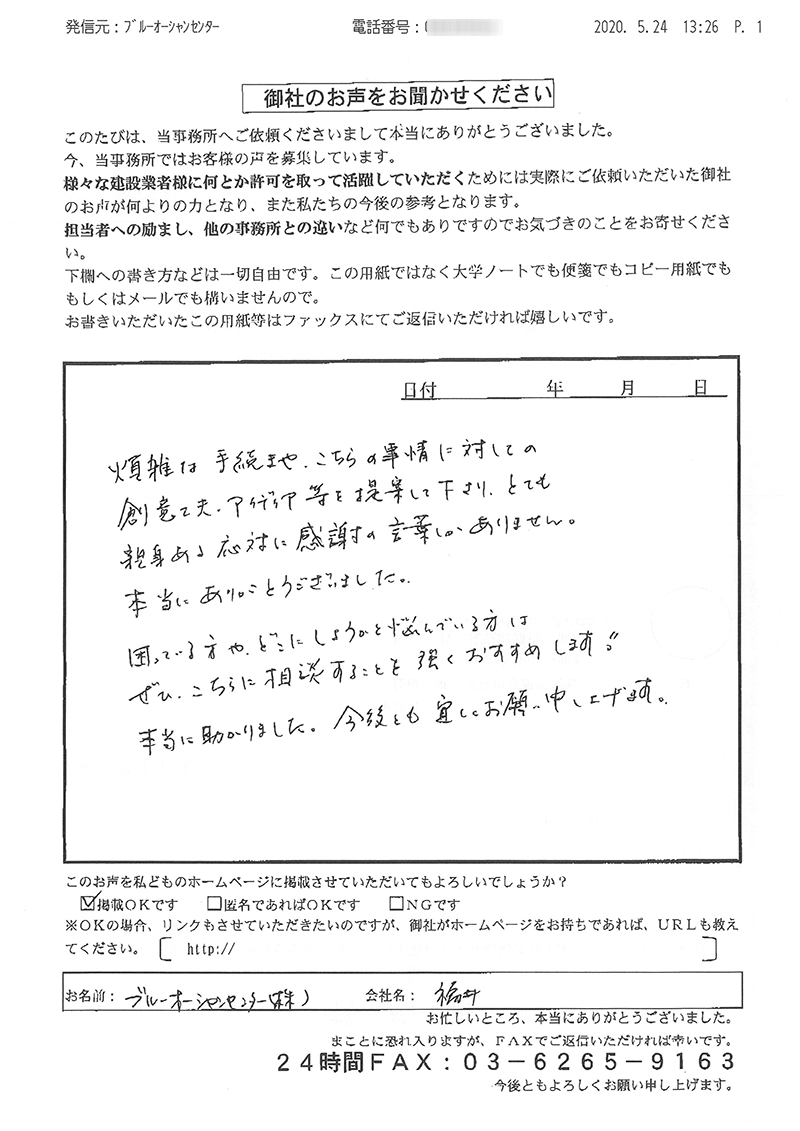 発信元：ブルーオーシャンセンター 電話番号：0 2020. 5.24 13:26 P. 1
御社のお声をお聞かせください
このたびは、当事務所へご依頼くださいまして本当にありがとうございました。
今、当事務所ではお客様の声を募集しています。
様々な建設業者様に何とか許可を取って活躍していただくためには実際にご依頼いただいた御社
のお声が何よりの力となり、また私たちの今後の参考となります。
担当者への励まし、他の事務所との違いなど何でもありですのでお気づきのことをお寄せくださ
い。
下欄への書き方などは一切自由です。この用紙ではなく大学ノートでも便箋でもコピー用紙でも
もしくはメールでも構いませんので。
お書きいただいたこの用紙等はファックスにてご返信いただければ嬉しいです。
日付 年 月 日
煩雑な手続きや、こちらの事情に対しての
創意工夫、アイディア等を提案して下さり、とても
親身ある応対に感謝の言葉しかありません。
本当にありがとうございました。
困っている方や、どこにしようかと悩んでいる方は
ぜひ、こちらに相談することを強くおすすめします!!
本当に助かりました。今後とも宜しくお願い申し上げます。
このお声を私どものホームページに掲載させていただいてもよろしいでしょうか？
☑掲載OKです □匿名であればOKです □NGです
※OKの場合、リンクもさせていただきたいのですが、御社がホームページをお持ちであれば、URLも教え
てください。［ http:// ］
お名前：ブルーオーシャンセンター(株) 会社名：福井
お忙しいところ、本当にありがとうございました。
まことに恐れ入りますが、FAXでご返信いただければ幸いです。
24時間FAX：03－6265－9163
今後ともよろしくお願い申し上げます。